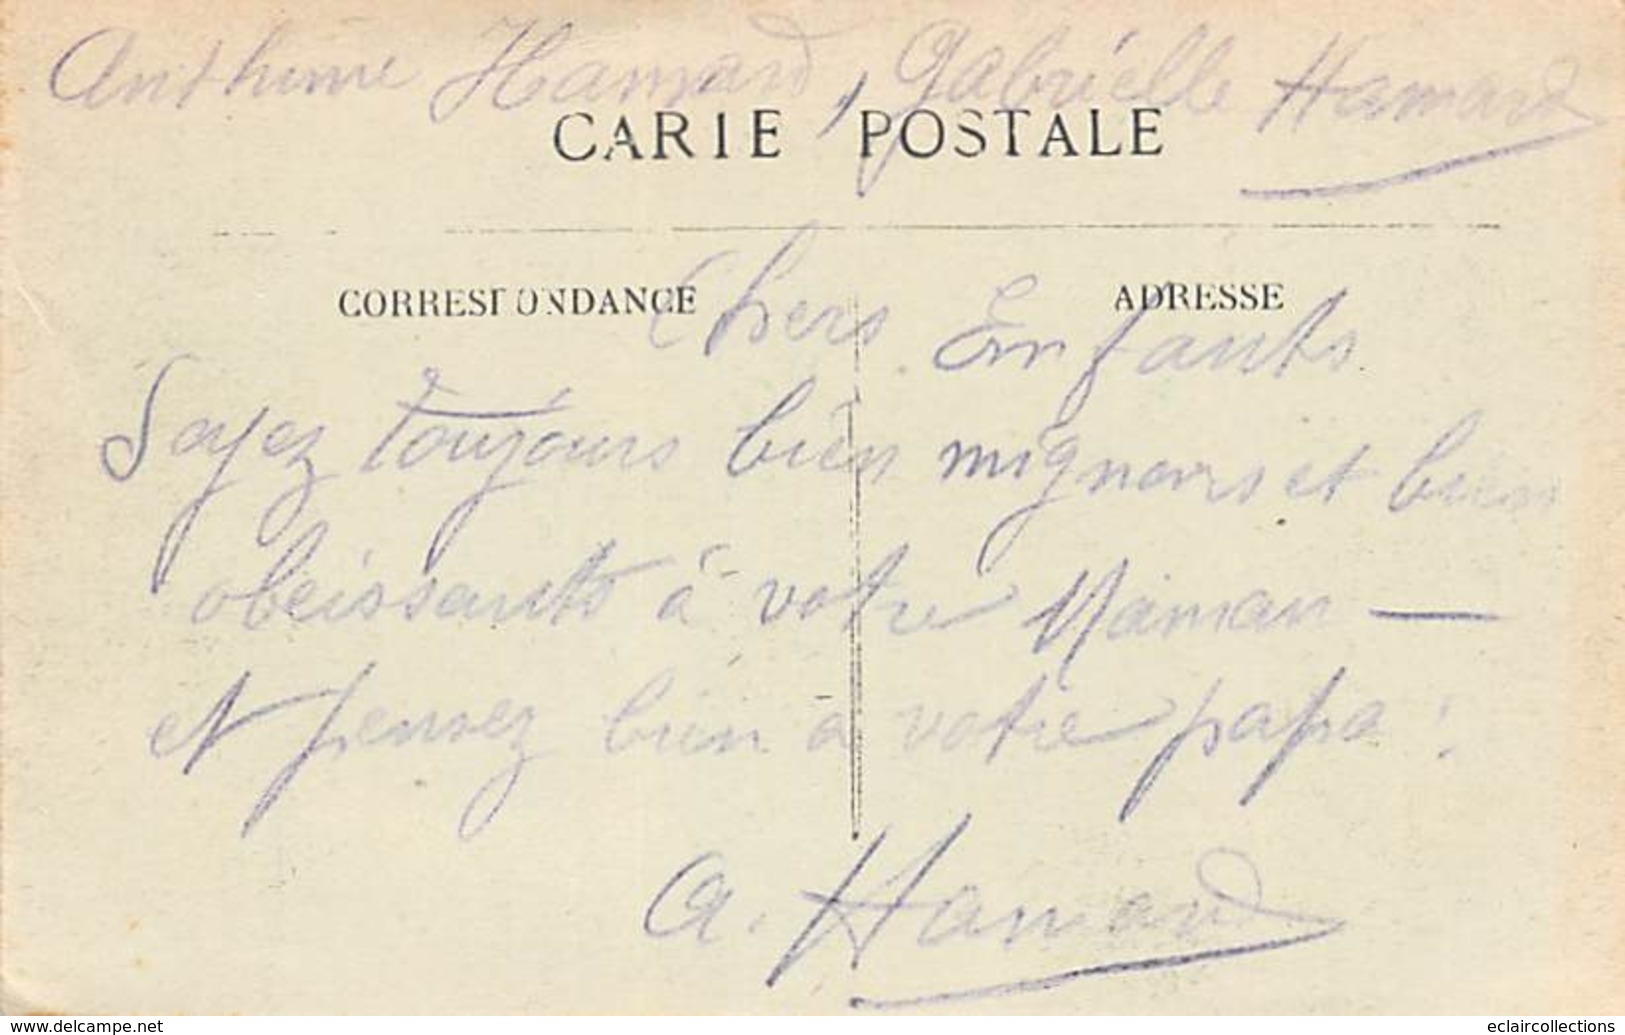 Anthime Hamard, Gabrielle Hamard
CARTE POSTALE
CORRESPONDANCE
ADRESSE
Chers Enfants
Soyez toujours bien mignons et bien
obeissants à votre Maman —
et pensez bien a votre papa :
A. Hamard
www.delcampe.net
eclaircollections